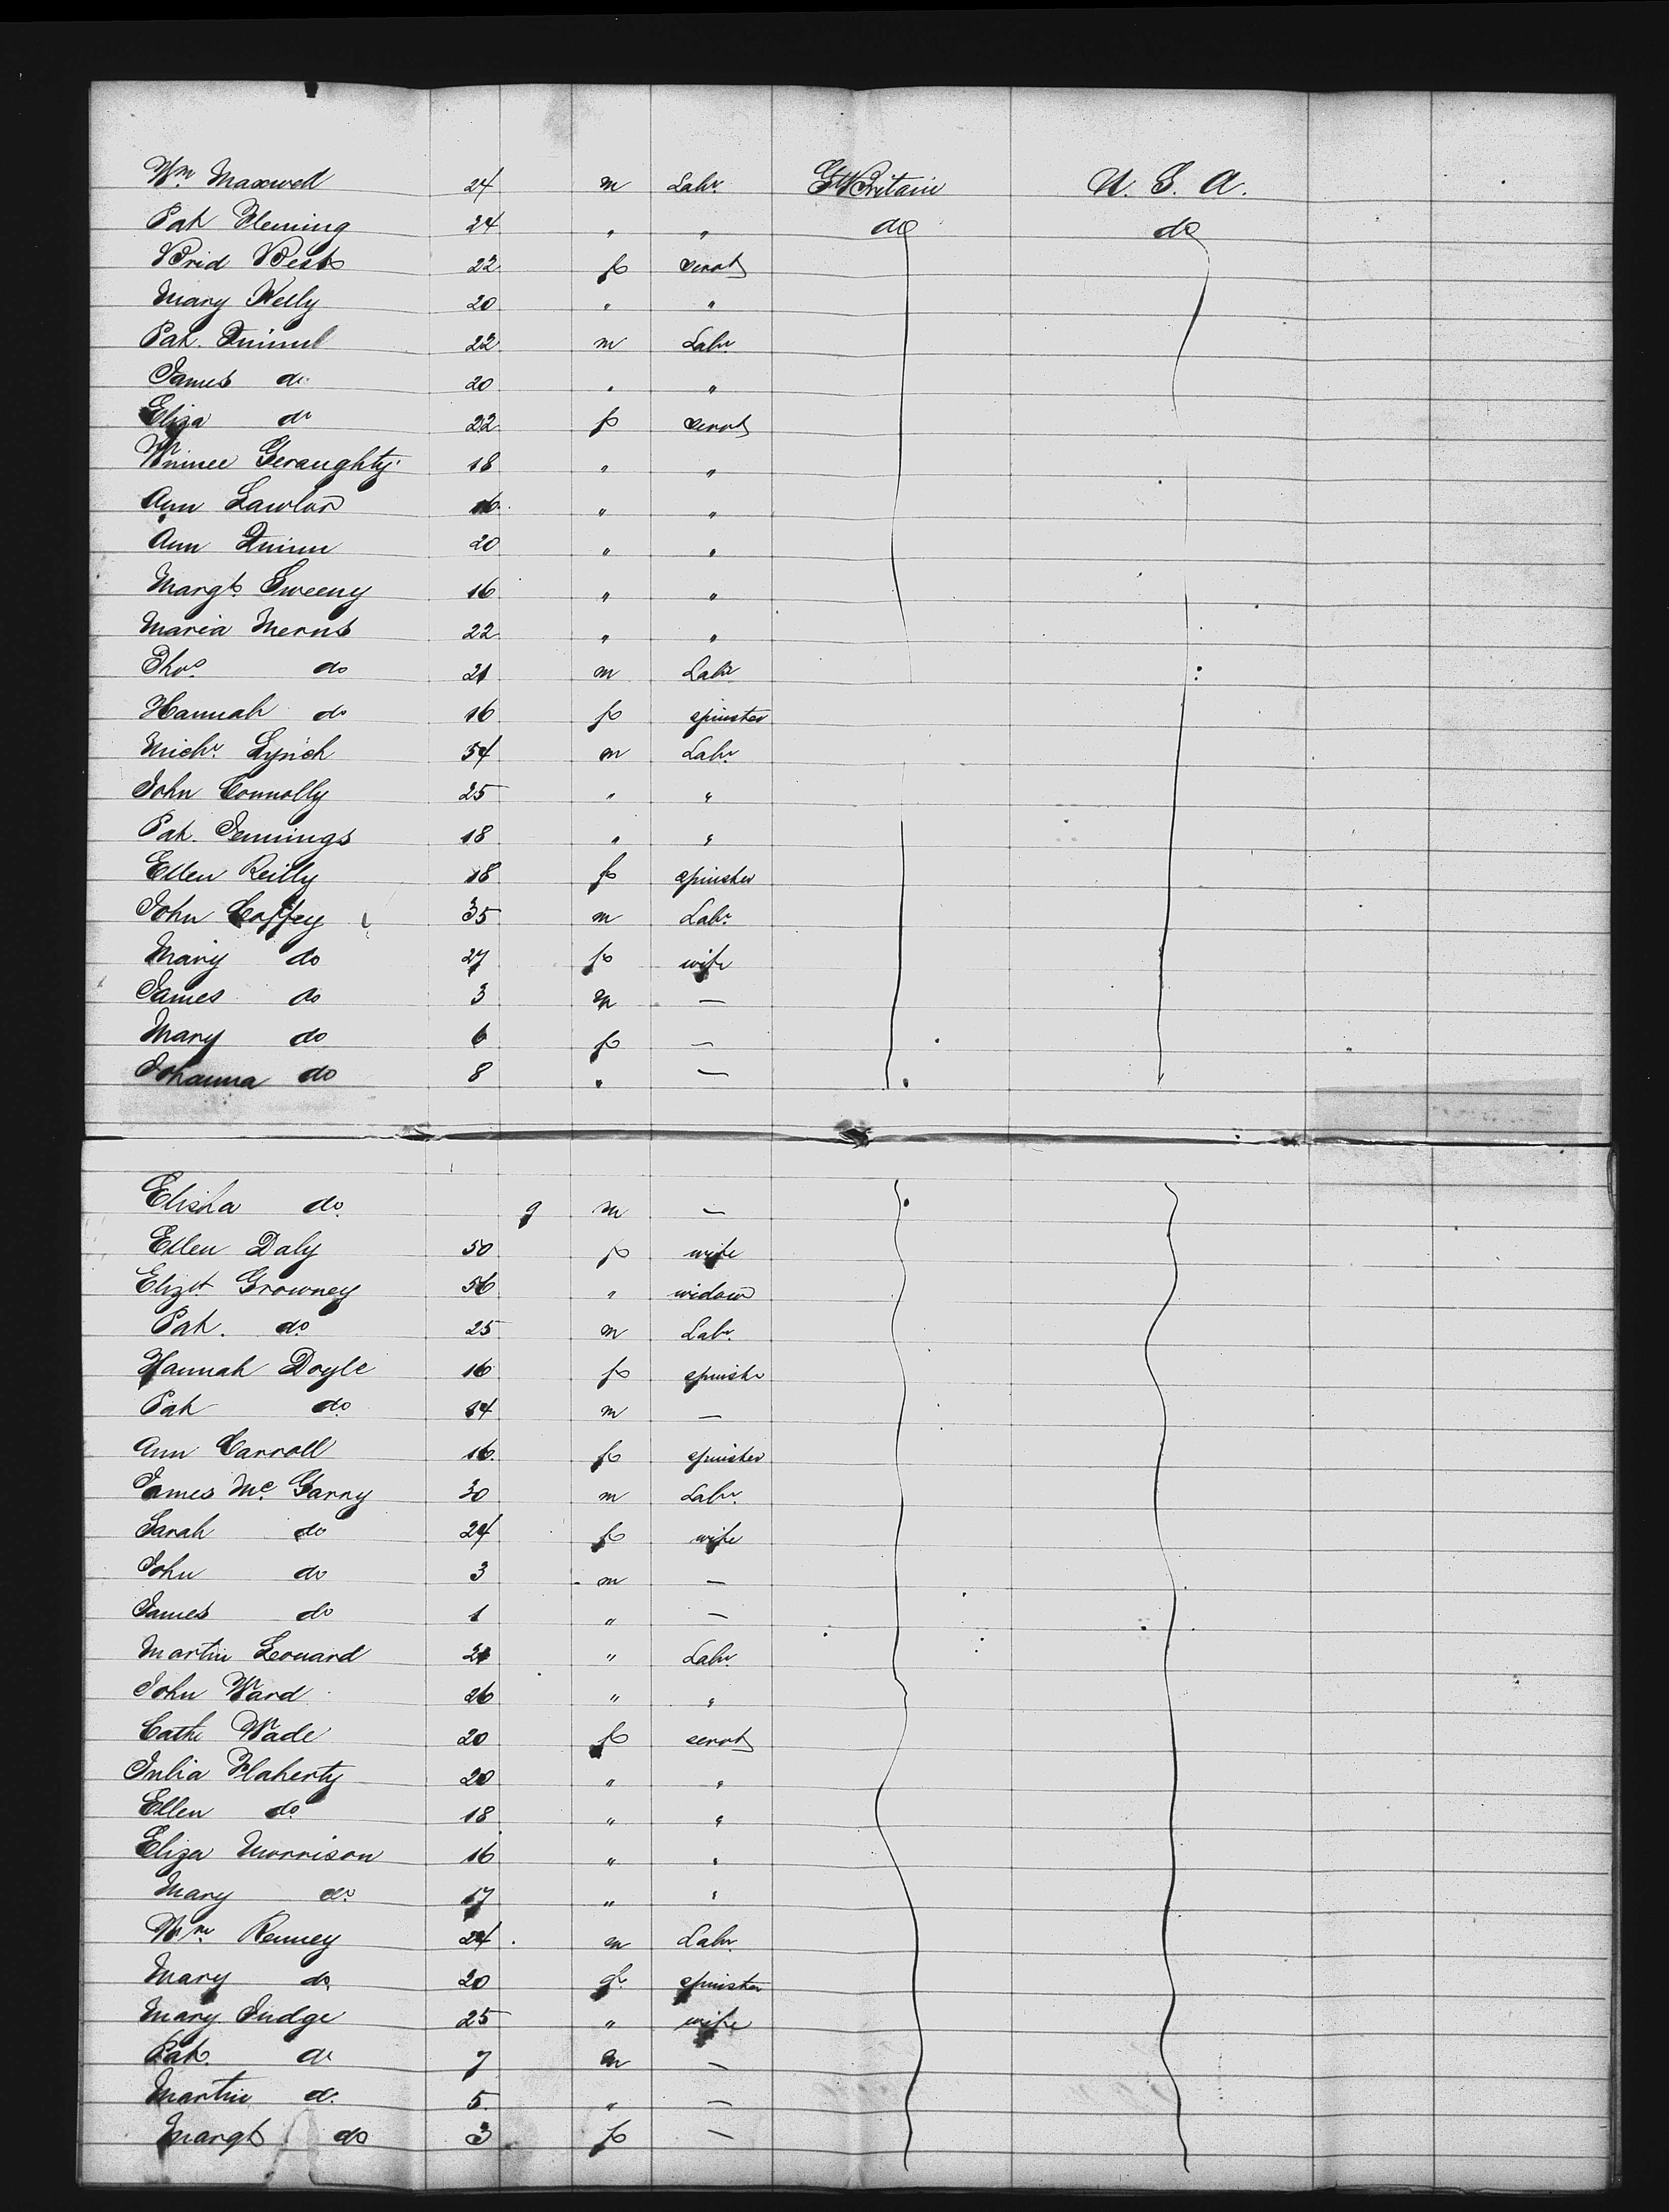 Wm Maxwell 24 m Labr. Gt Britain U. S. A.
Pat Fleming 24 " " do do
Brid West 22 f servt
Mary Kelly 20 " "
Pat. 22 m Labr
James do 20 " "
Eliza do 22 f servt
Winnee Geraughty 18 " "
Ann Lawlor 16 " "
Ann Quinn 20 " "
Margt. Sweeny 16 " "
Maria Merns 22 " "
Thos. do 21 m Labr
Hannah do 16 f spinster
Michl. Lynch 54 m Labr.
John Connolly 25 " "
Pat. Jennings 18 " "
Ellen Reilly 18 f spinster
John Coffey 35 m Labr.
Mary do 27 f wife
James do 3 m —
Mary do 6 f —
Johanna do 8 " —
Elisha do 9 m —
Ellen Daly 50 f wife
Elizt Growney 56 " widow
Pat. do 25 m Labr.
Hannah Doyle 16 f spinstr
Pat do 14 m —
Ann Carroll 16 f spinster
James Mc Garry 30 m Labr.
Sarah do 24 f wife
John do 3 m —
James do 1 " —
Martin Leonard 21 " Labr.
John Ward 26 " "
Cathe Wade 20 f servt
Julia Flaherty 20 " "
Ellen do 18 " "
Eliza Morrison 16 " "
Mary do 17 " "
Wm. Kenney 24 m Labr.
Mary do 20 f spinster
Mary Judge 25 " wife
Pat. do 7 m —
Martin do 5 " —
Margt do 3 f —